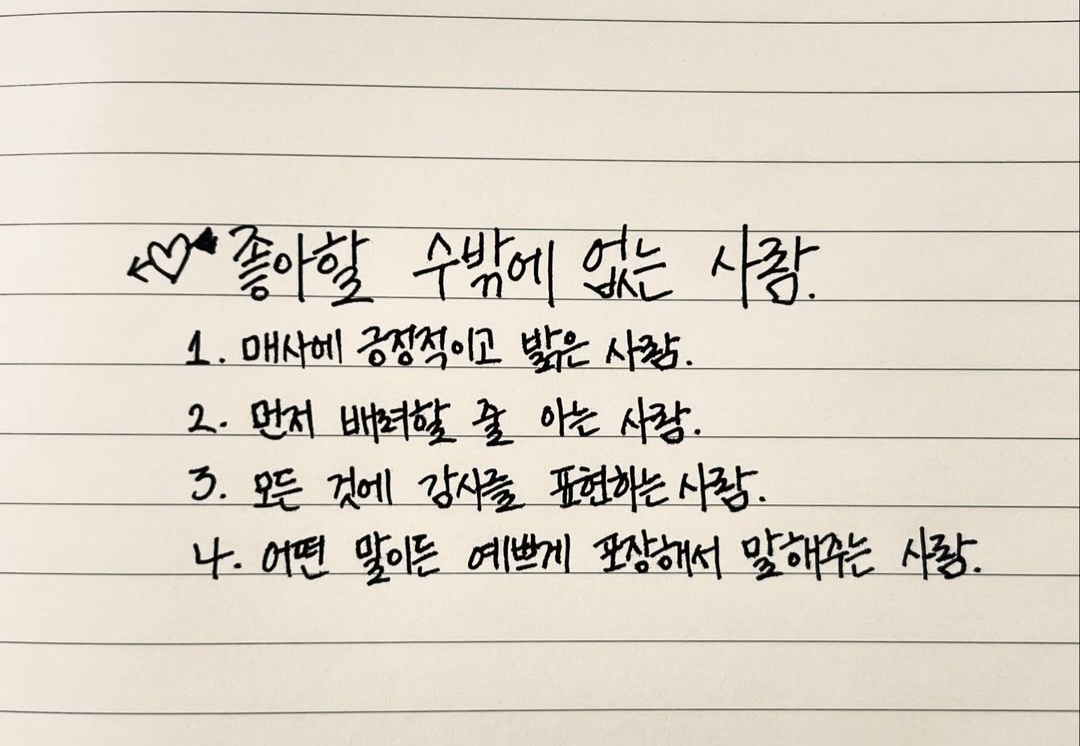 좋아할 수밖에 없는 사람.
1. 매사에 긍정적이고 밝은 사람.
2. 먼저 배려할 줄 아는 사람.
3. 모든 것에 감사를 표현하는 사람.
4. 어떤 말이든 예쁘게 포장해서 말해주는 사람.